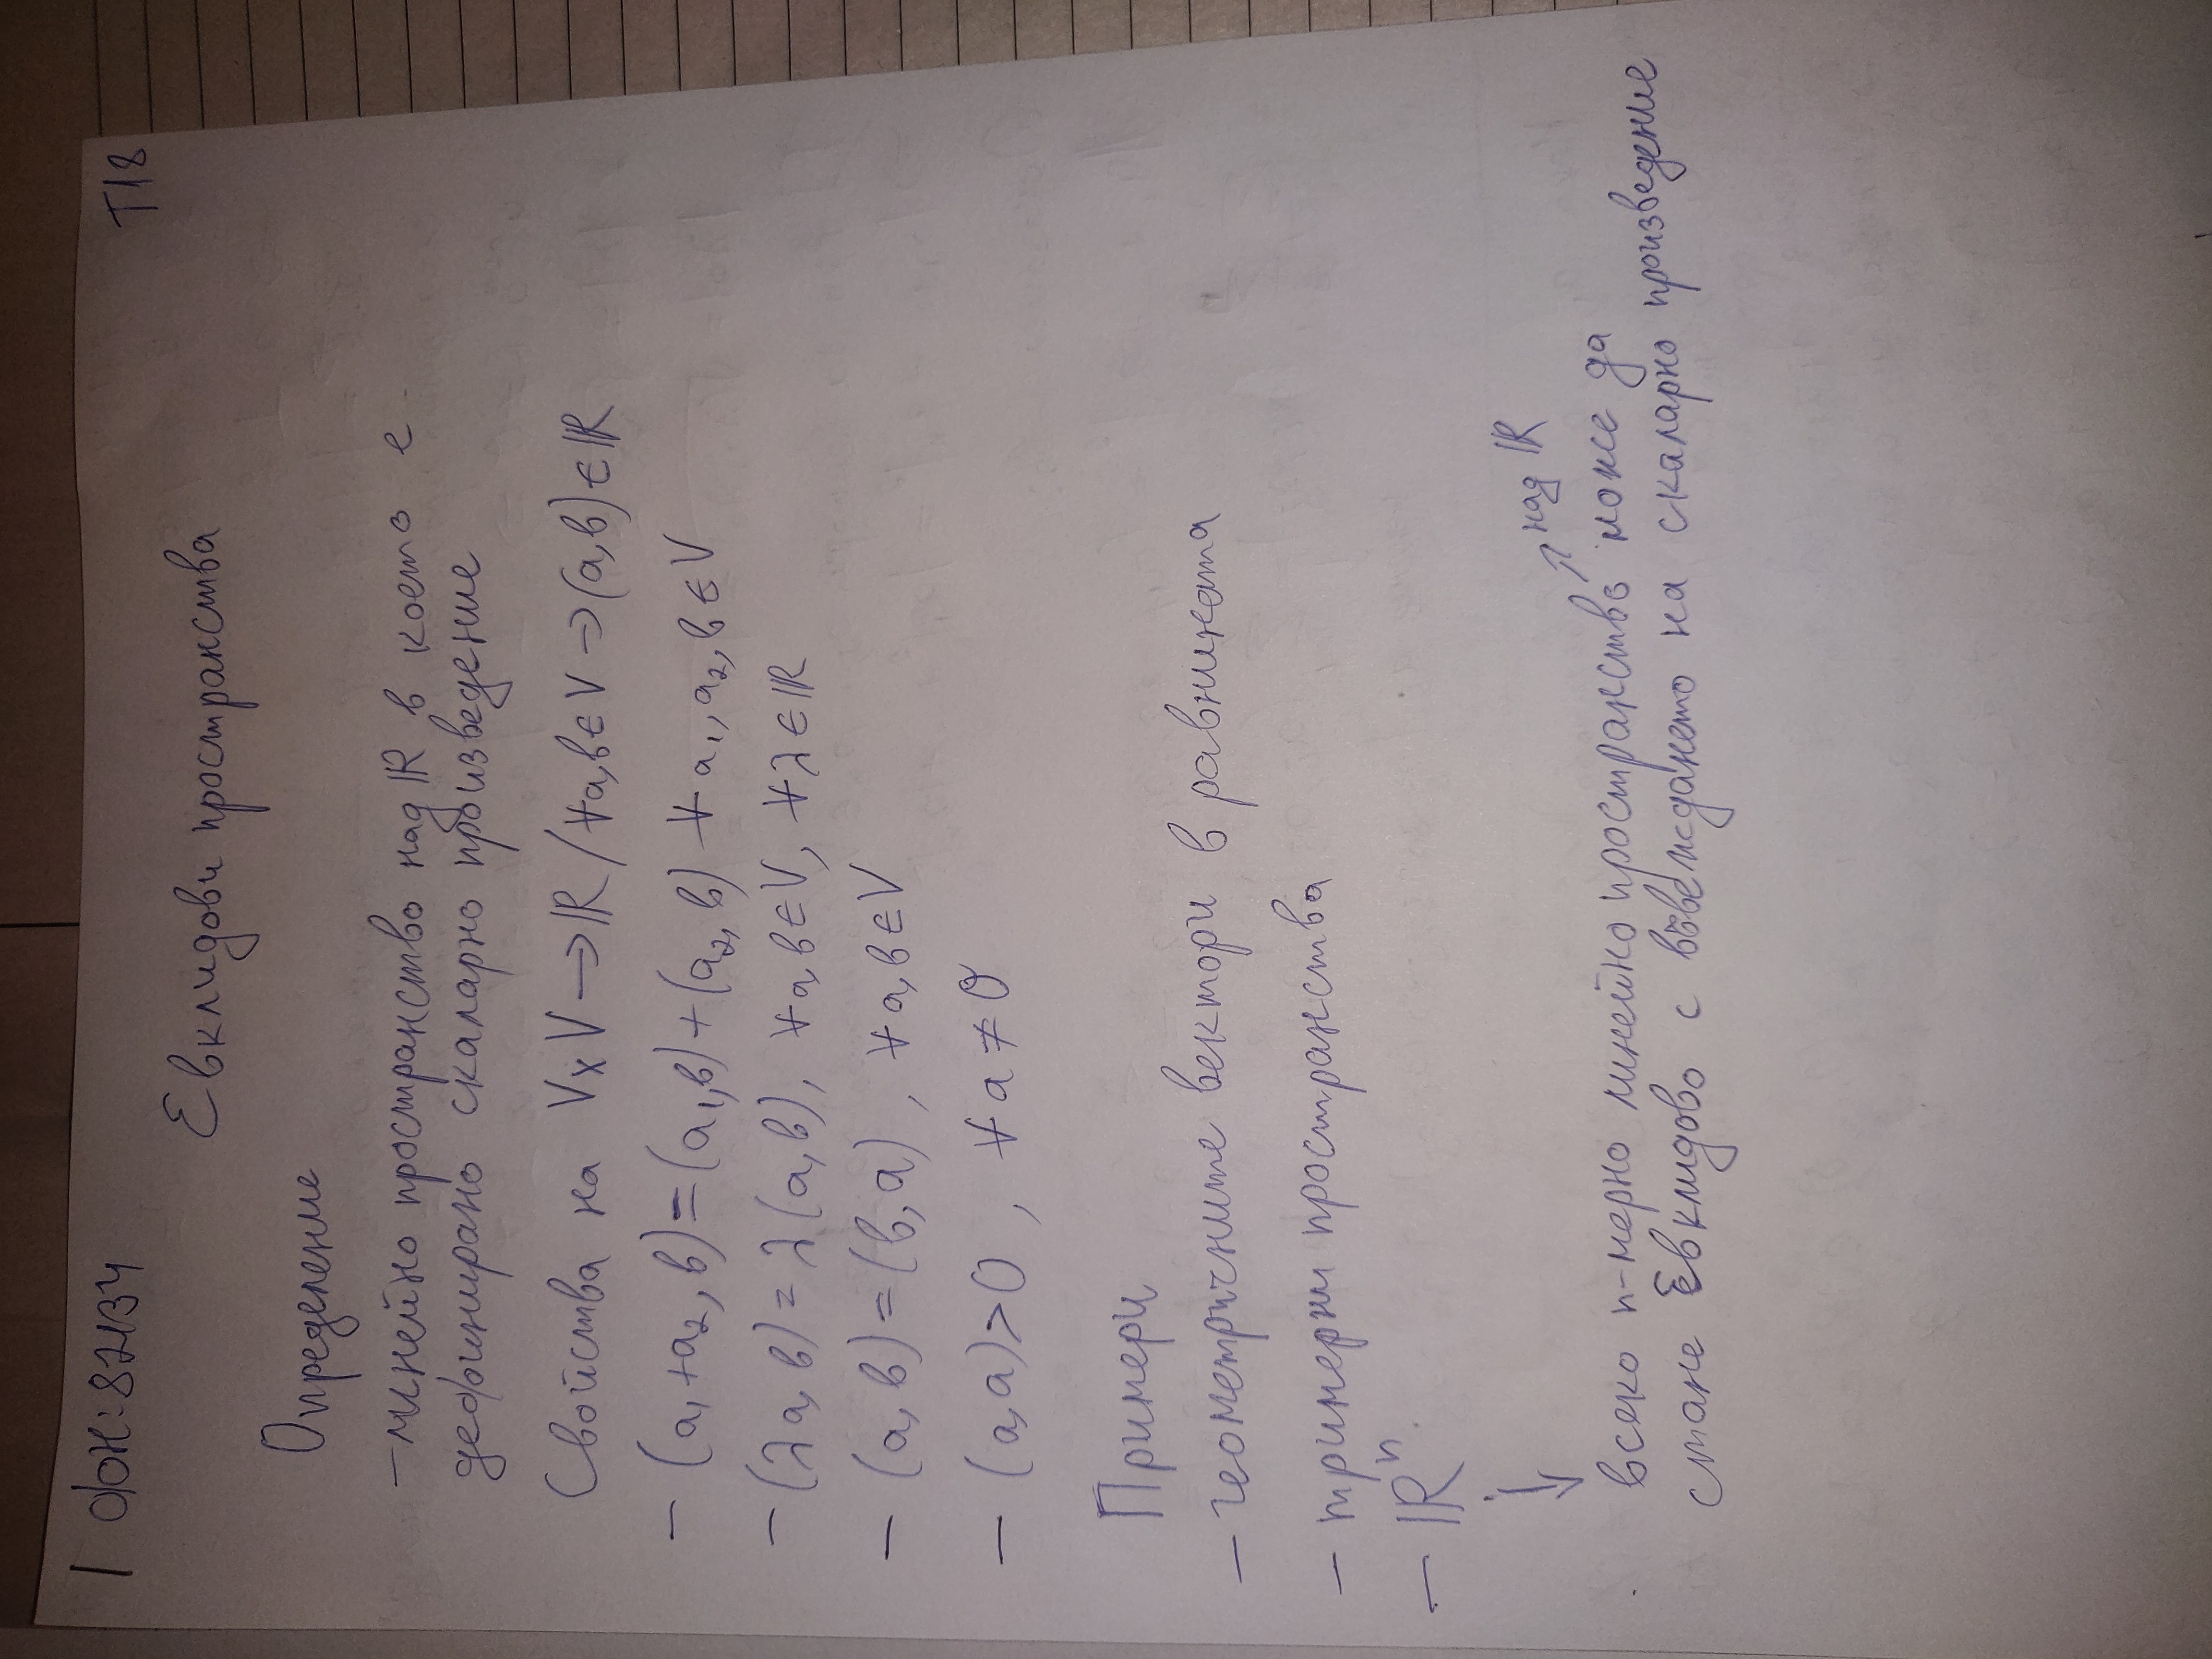 1 фн: 82134 T18
Евклидови пространства
Определение
- линейно пространство над ℝ в което е
дефинирано скаларно произведение
Свойства на V x V → ℝ / ∀a,b ∈ V → (a,b) ∈ ℝ
- (a₁+a₂, b) = (a₁,b) + (a₂,b) ∀ a₁, a₂, b ∈ V
- (λa, b) = λ(a,b), ∀a,b ∈ V, ∀λ ∈ ℝ
- (a,b) = (b,a), ∀a,b ∈ V
- (a,a) > 0, ∀a ≠ θ
Примери
- геометричните вектори в равнината
- тримерни пространства
- ℝⁿ
↓
↗ над ℝ
всяко n-мерно линейно пространство може да
стане Евклидово с въвеждането на скаларно произведение